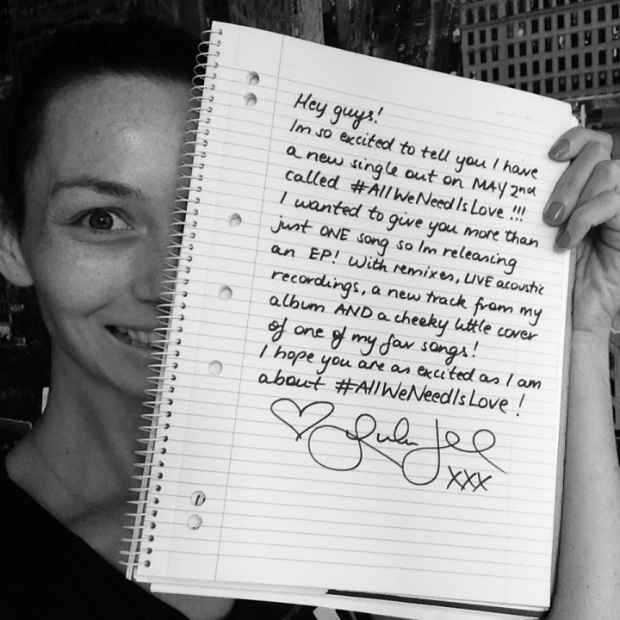 Hey guys!
Im so excited to tell you I have
a new single out on MAY 2nd
called #AllWeNeedIsLove !!!
I wanted to give you more than
just ONE song so Im releasing
an EP! With remixes, LIVE acoustic
recordings, a new track from my
album AND a cheeky little cover
of one of my fav songs!
I hope you are as excited as I am
about #AllWeNeedIsLove!
xxx